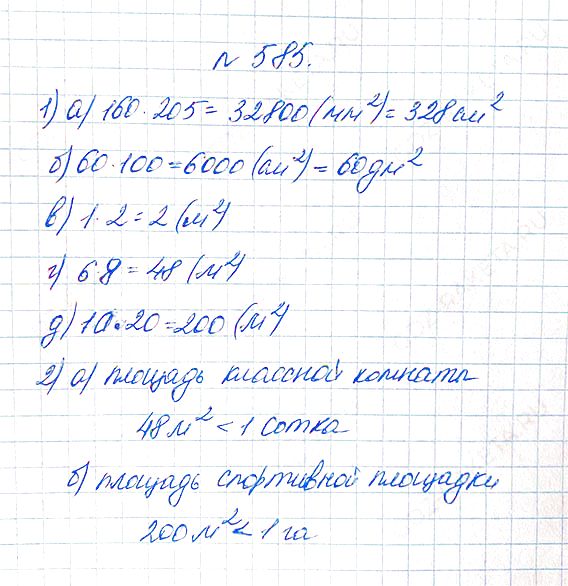 № 585.
1) а) 160 · 205 = 32800 (мм²) = 328 см²
б) 60 · 100 = 6000 (см²) = 60 дм²
в) 1 · 2 = 2 (м²)
г) 6 · 8 = 48 (м²)
д) 10 · 20 = 200 (м²)
2) а) площадь классной комнаты
48 м² < 1 сотка
б) площадь спортивной площадки
200 м² < 1 га